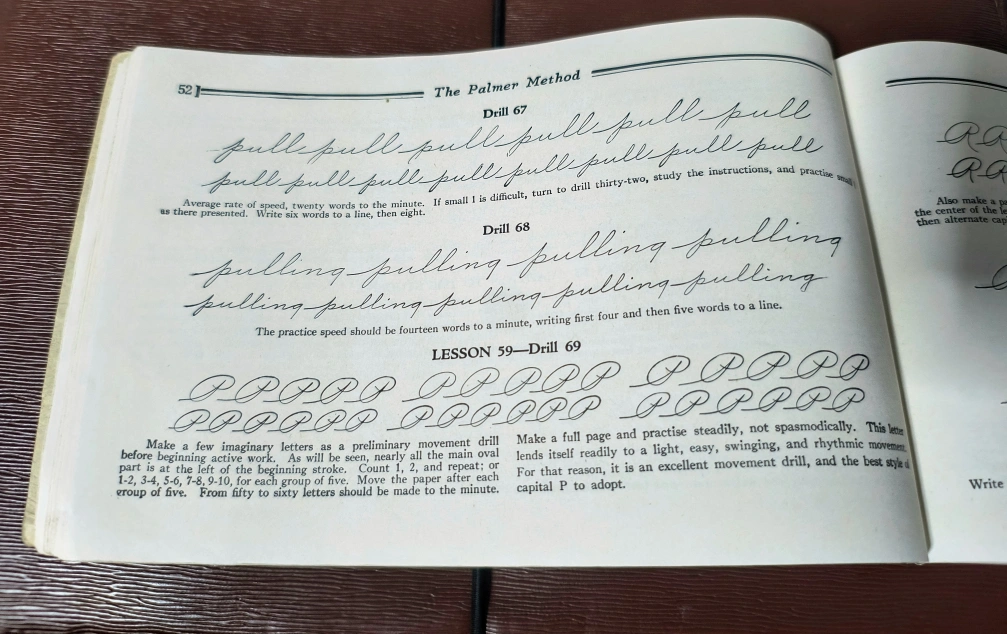 52
The Palmer Method
Drill 67
pull pull pull pull pull pull
pull pull pull pull pull pull pull pull
Average rate of speed, twenty words to the minute. If small l is difficult, turn to drill thirty-two, study the instructions, and practise small
as there presented. Write six words to a line, then eight.
Drill 68
pulling pulling pulling pulling
pulling pulling pulling pulling pulling
The practice speed should be fourteen words to a minute, writing first four and then five words to a line.
LESSON 59—Drill 69
P P P P P P P P P P P P P P P
P P P P P P P P P P P P P P P P P P
Make a few imaginary letters as a preliminary movement drill
before beginning active work. As will be seen, nearly all the main oval
part is at the left of the beginning stroke. Count 1, 2, and repeat; or
1-2, 3-4, 5-6, 7-8, 9-10, for each group of five. Move the paper after each
group of five. From fifty to sixty letters should be made to the minute.
Make a full page and practise steadily, not spasmodically. This letter
lends itself readily to a light, easy, swinging, and rhythmic movement.
For that reason, it is an excellent movement drill, and the best style of
capital P to adopt.
R R
R R
Also make a
the center of the
then alternate
Write